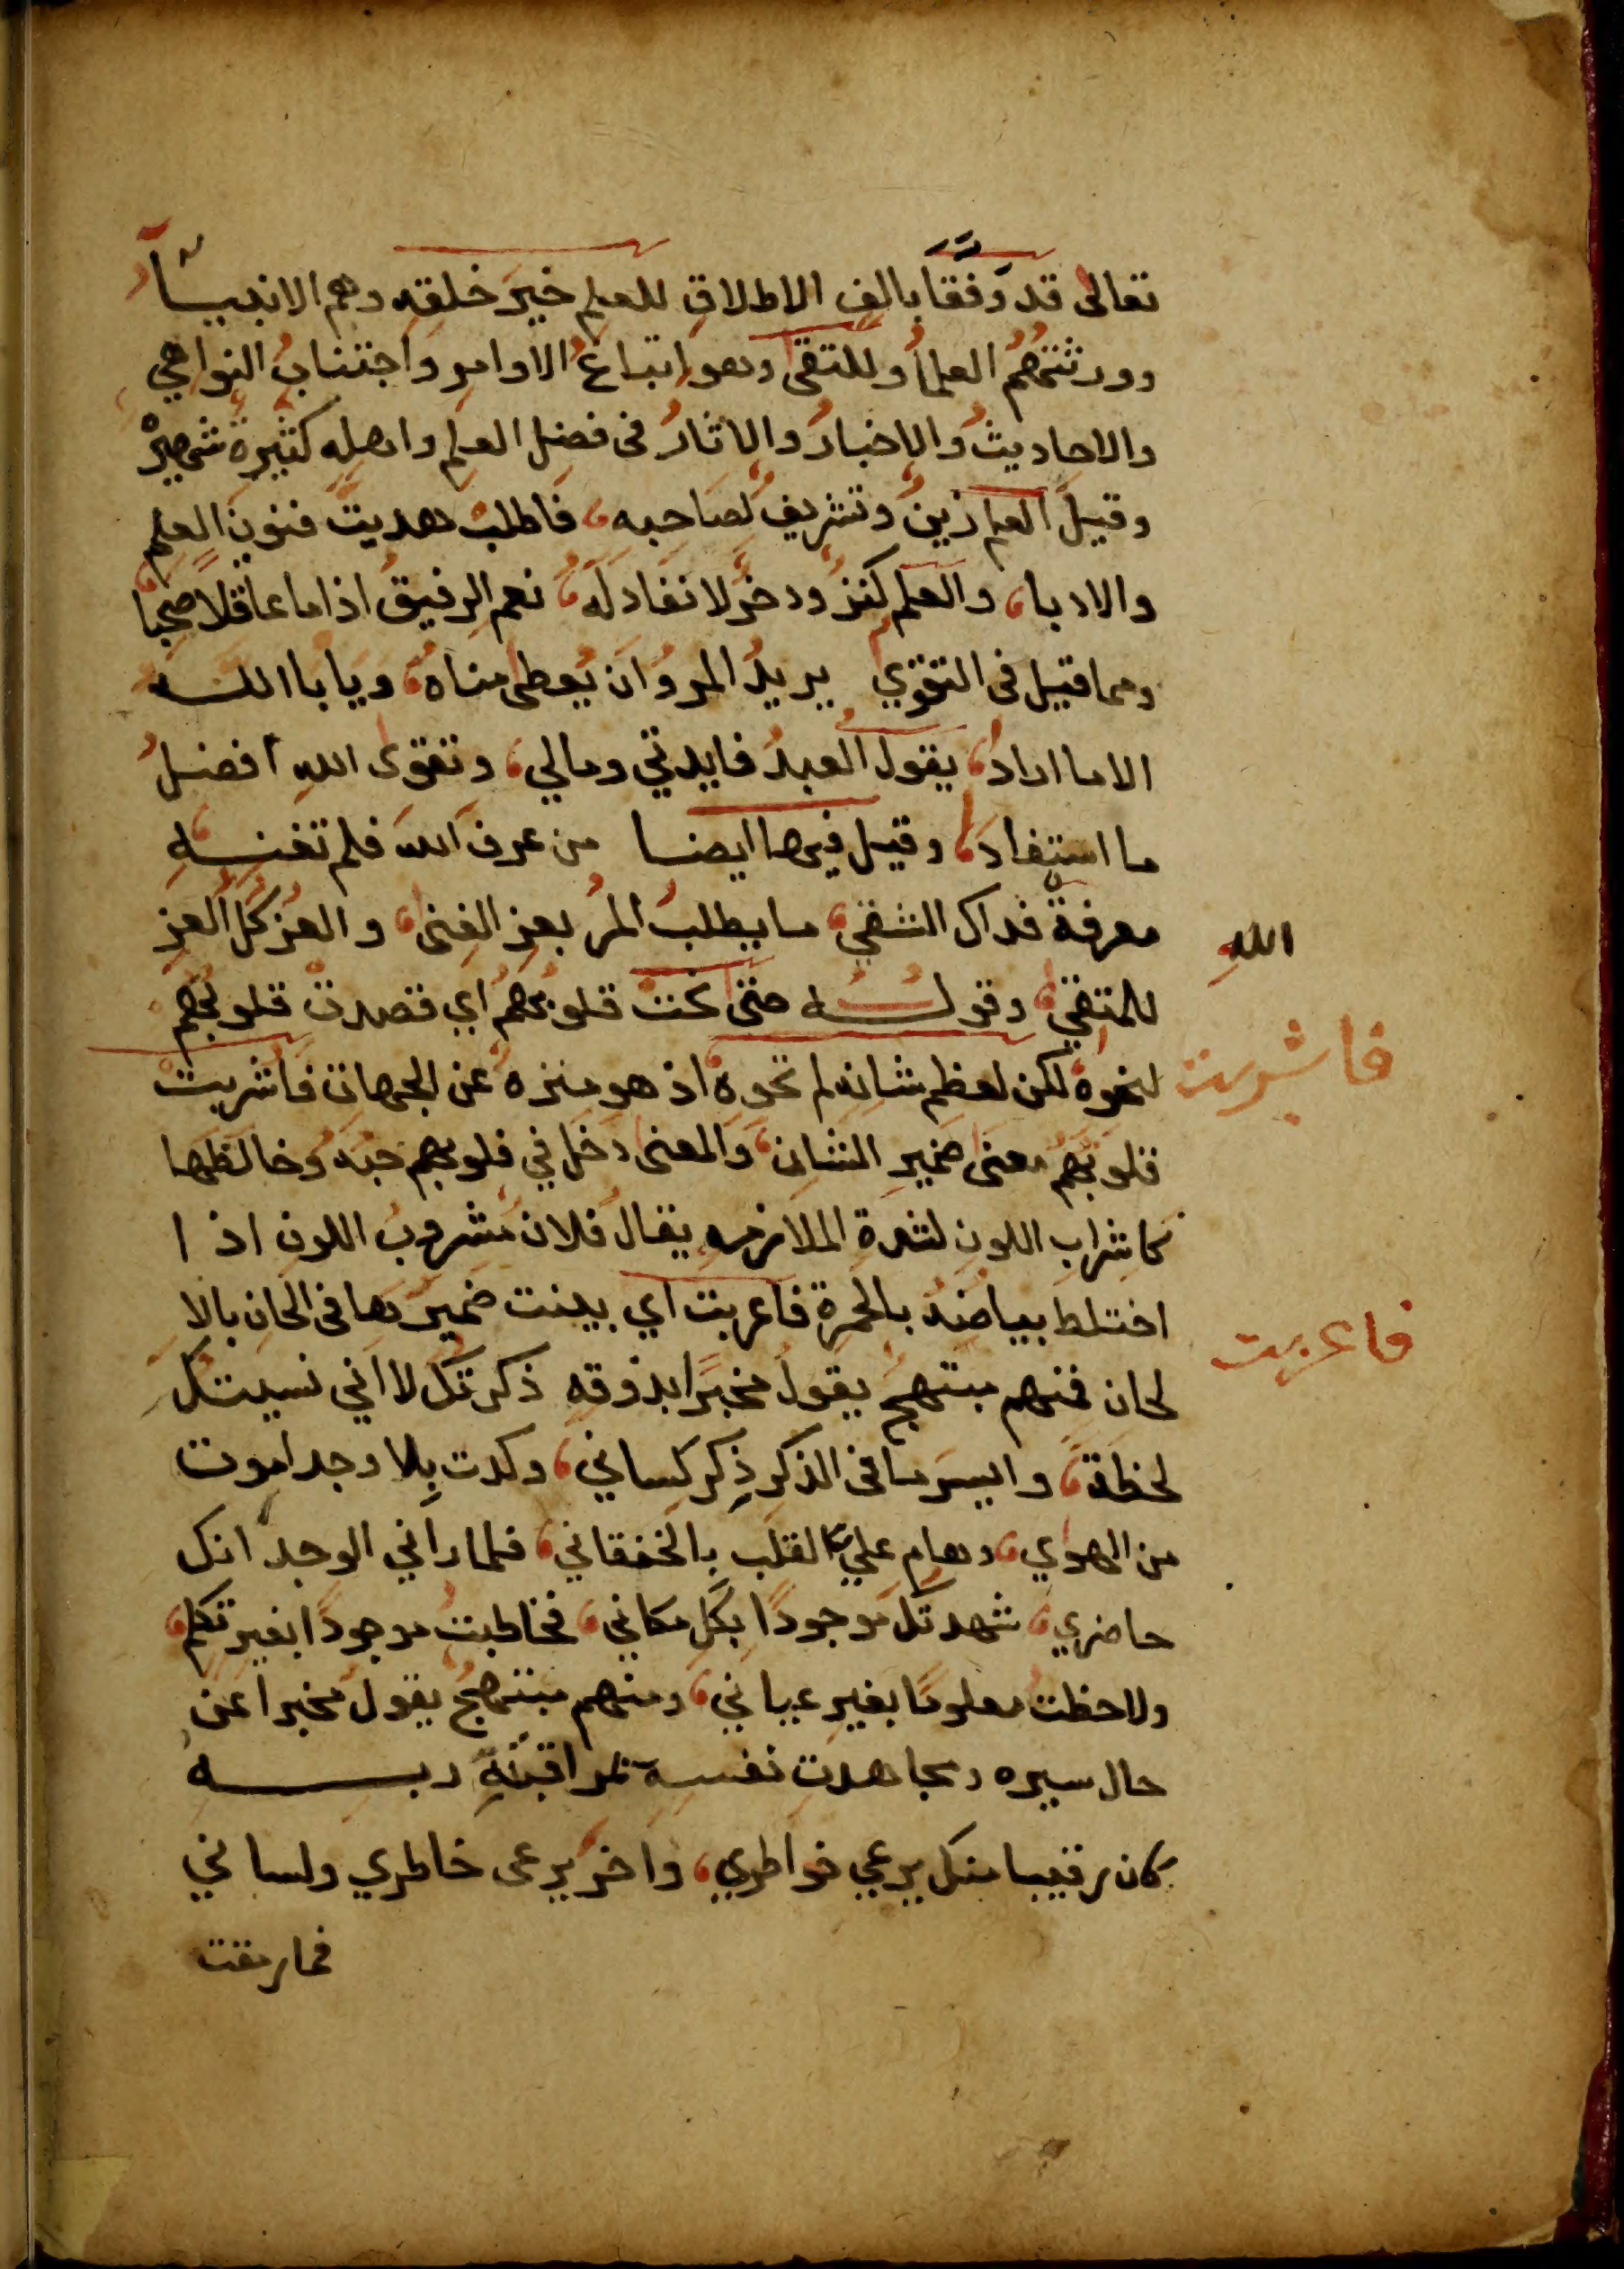 تعالى قد وفقا بالف الاطلاق للعلم خير خلقه وهم الانبيا
وورثتهم العلما وللتقى وهو اتباع الاوامر واجتناب النواهي
والاحاديث والاخبار والاثار فى فضل العلم واهله كثيرة شهيرة
وقيل العلم زين وتشريف لصاحبه، فاطلب هديت فنون العلم
والادبا، والعلم كنز وذخر لا نفاد له، نعم الرفيق اذا ما عاقلا صحبا
ومما قيل فى التقوي يريد المرؤ ان يعطى مناه، ويابا الله
الا ما اراد، يقول العبد فايدتي ومالي، وتقوى الله افضل
ما استفاد، وقيل فيها ايضا من عرف الله فلم تغنه
معرفة فذاك الشقي، ما يطلب المر بعز الغنى، والعز كل العز
الله
للمتقي، وقوله حتى نحت قلوبهم اي قصدت قلوبهم
لنحوه لكن لعظم شانه لم تحوه اذ هو منزه عن الجهات فاشربت
فاشربت
قلوبهم معنى ضمير الشان، والمعنى دخل في قلوبهم حبه وخالطها
كاشراب اللون لشدة الملازمه يقال فلان مشروب اللون اذا
اختلط بياضه بالحمرة فاعربت اي بينت ضميرها فى الحان بالا
فاعربت
لحان فمنهم مبتهج يقول مخبرا بذوقه ذكرتك لا اني نسيتك
لحظة، وايسر ما فى الذكر ذكر لساني، وكدت بلا وجد اموت
من الهوي، وهام علي القلب بالخفقاني، فلما راني الوجد انك
حاضري، شهدتك موجودا بكل مكاني، فخاطبت موجودا بغير تكلم،
ولاحظت معلوما بغير عياني، ومنهم مبتهج يقول مخبرا عن
حال سيره ومجاهدت نفسه بمراقبة ربه
كان رقيبا منك يرعي خواطري، واخر يرعى خاطري ولساني
فما رمقت